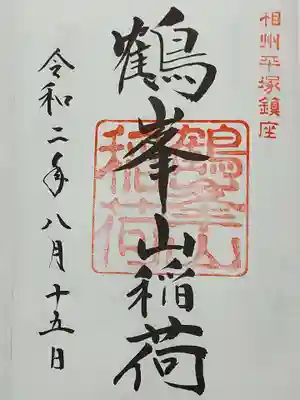 相州平塚鎮座
鶴峯山稲荷
鶴峯山
稲荷
令和二年八月十五日